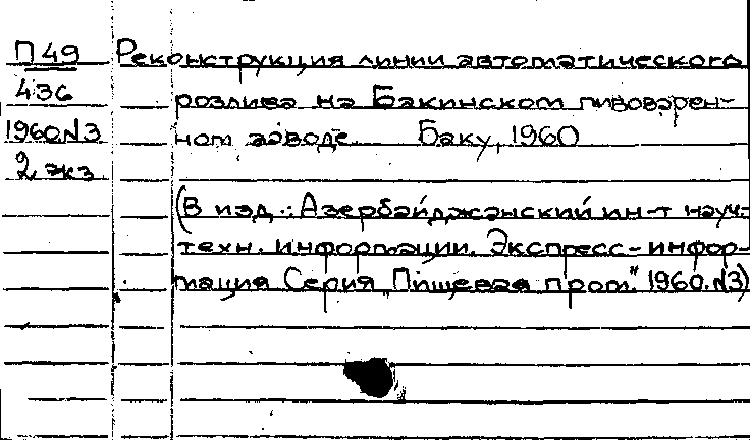 П49 Реконструкция линии автоматического
436 розлива на Бакинском пивоварен-
1960.N3 ном заводе. Баку, 1960
2 экз
(В изд.: Азербайджанский ин-т науч.-
техн. информации. Экспресс-инфор-
мация Серия „Пищевая пром." 1960.N3)